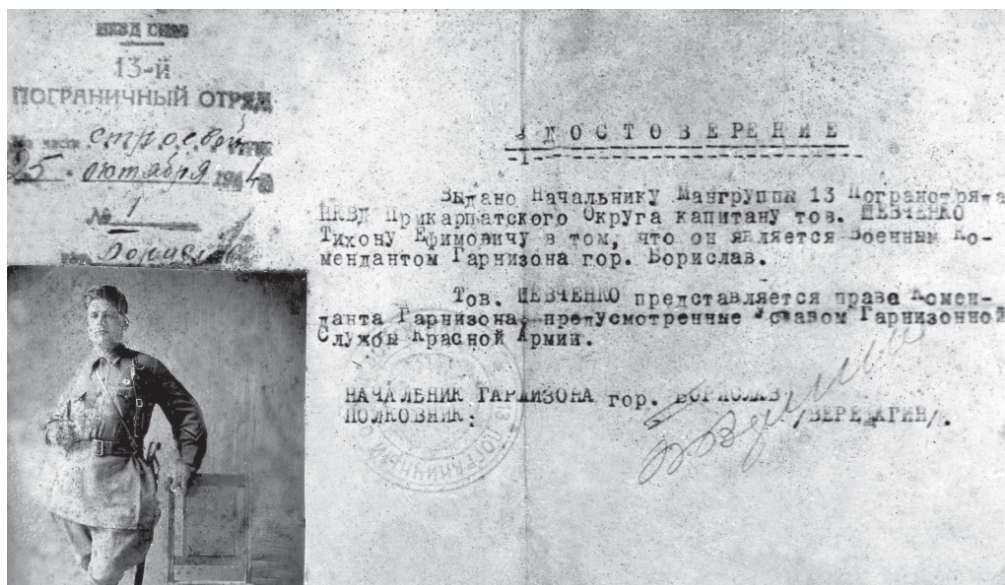 НКВД СССР
13-й
ПОГРАНИЧНЫЙ ОТРЯД
части строевой
25. октября 1944
№ 1
УДОСТОВЕРЕНИЕ
Выдано Начальнику Мангруппы 13 Погранотряда
НКВД Прикарпатского Округа капитану тов. ШЕВЧЕНКО
Тихону Ефимовичу в том, что он является Военным Ко-
мендантом Гарнизона гор. Борислав.
Тов. ШЕВЧЕНКО представляется права Комен-
данта Гарнизона, предусмотренные Уставом Гарнизонной
Службы Красной Армии.
НАЧАЛЬНИК ГАРНИЗОНА гор. БОРИСЛАВ
ПОЛКОВНИК: /ВЕРЕЩАГИН/.
ПОГРАНИЧНЫЙ